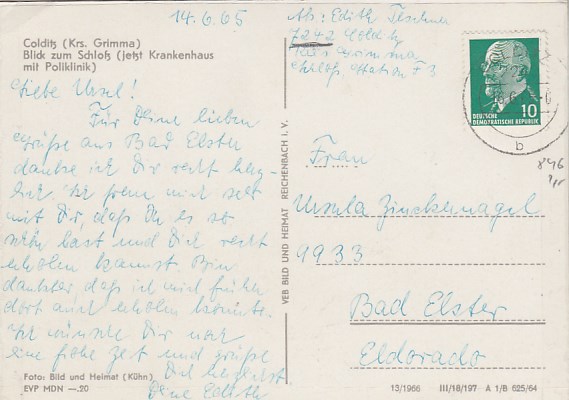 14.6.65
Colditz (Krs. Grimma)
Blick zum Schloß (jetzt Krankenhaus
mit Poliklinik)
Liebe Ursel!
Für Deine lieben
Grüße aus Bad Elster
danke ich Dir recht herz-
lich. Ich freue mich sehr
mit Dir, daß Du es so
schön hast und Dich recht
erholen kannst. Bin
dankbar, daß ich mich früher
dort auch erholen konnte.
Ich wünsche Dir noch
eine frohe Zeit und grüße
Dich herzlichst
Deine Edith
Foto: Bild und Heimat (Kühn)
EVP MDN —.20
VEB BILD UND HEIMAT REICHENBACH I. V.
Abs: Edith Teschner
7242 Colditz
Krs. Grimma
Schloß, Station F 3
10
DEUTSCHE
DEMOKRATISCHE REPUBLIK
b
Frau
Ursula Zinckernagel
9933
Bad Elster
Eldorado
13/1966 III/18/197 A 1/B 625/64